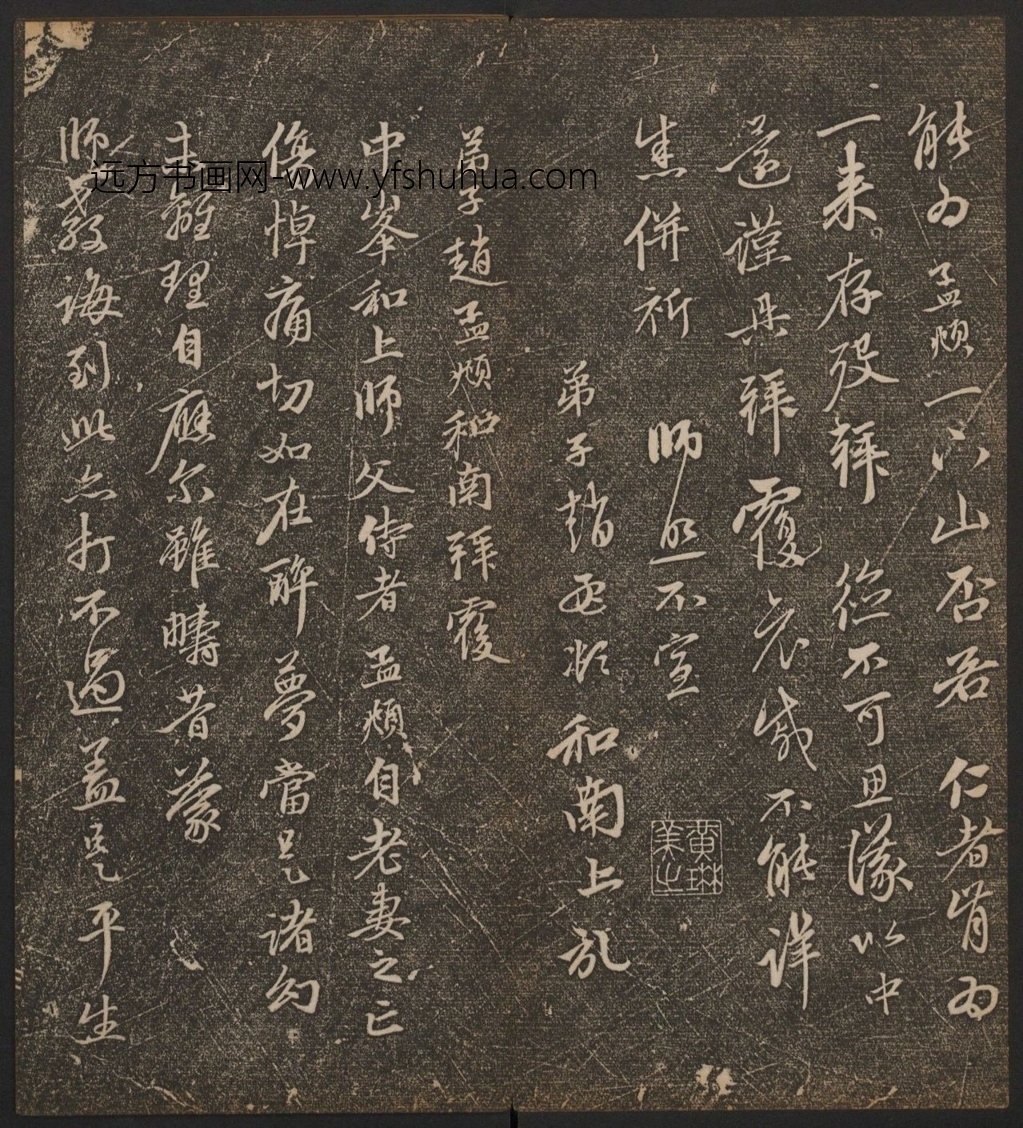 能為孟頫一下山否若仁者肯為
一来存殁拜德不可思議以中
還謹再拜覆哀戚不能詳
悉併祈師照不宣
弟子趙孟頫和南上
黃琳美之
弟子趙孟頫和南拜覆
中峯和上師父侍者孟頫自老妻之亡
傷悼痛切如在醉夢當是諸幻
未離理自應尔雖疇昔蒙
師教誨到此亦打不過盖是平生
远方书画网-www.yfshuhua.com